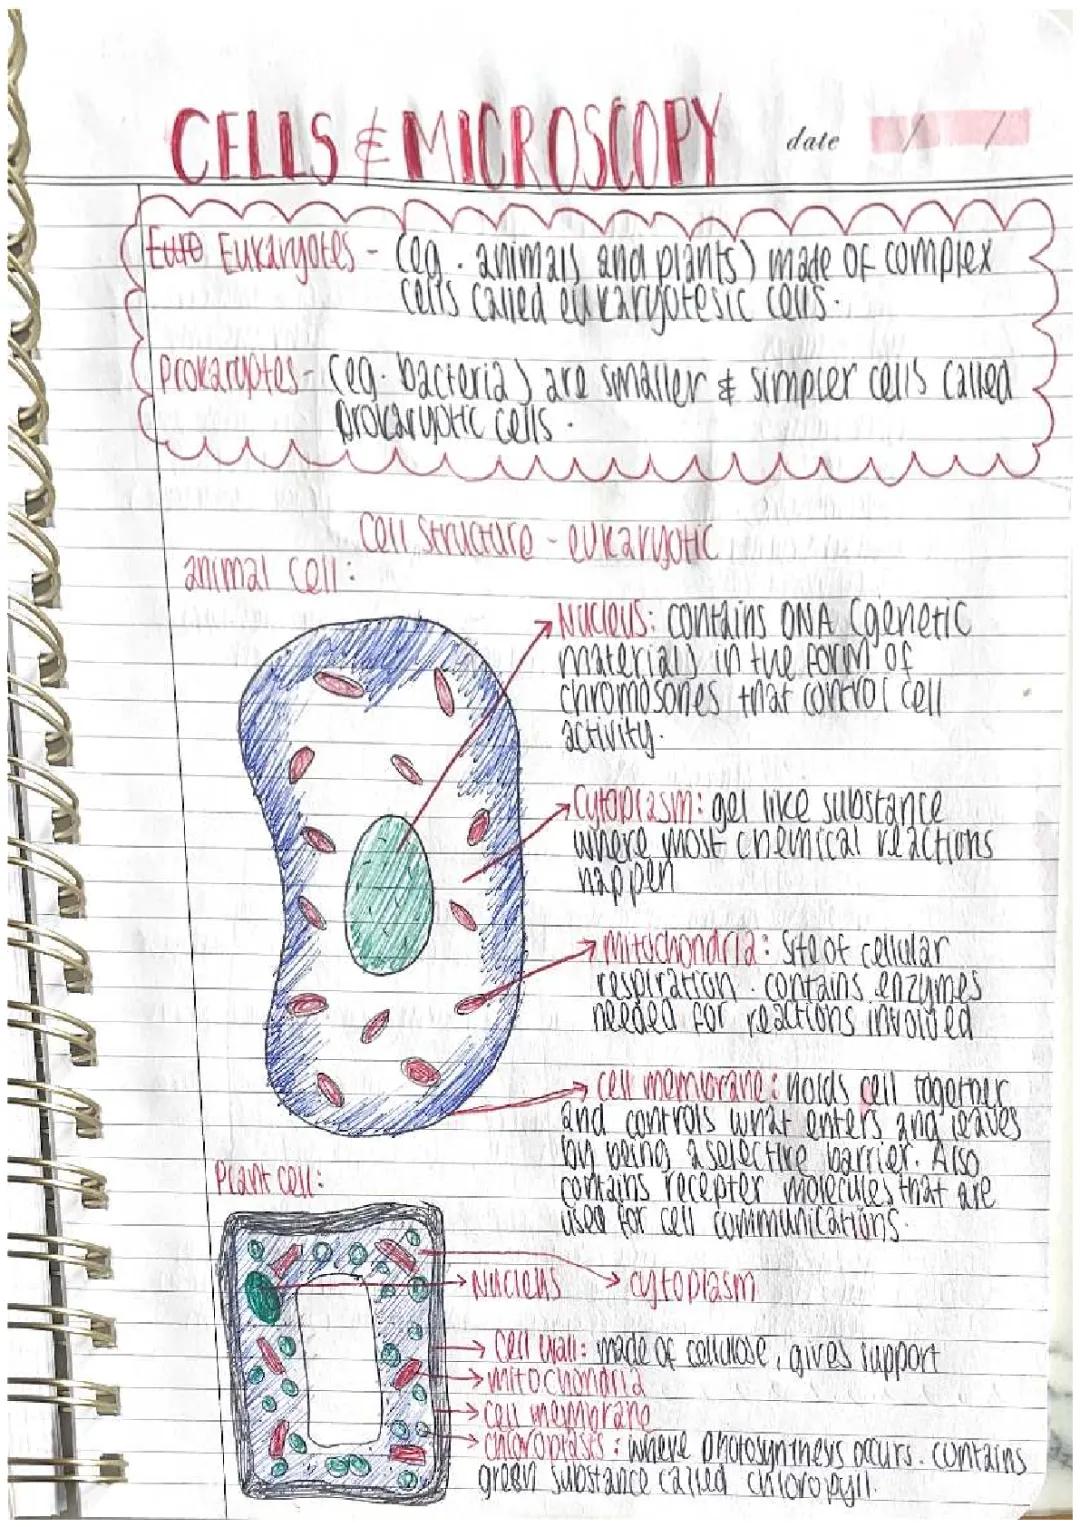 CELLS & MICROSCOPY
date / /
Eukaryotes - (eg. animals and plants) made of complex
cells called eukaryotesic cells.
prokaryotes - (eg. bacteria) are smaller & simpler cells called
prokaryotic cells.
Cell structure - eukaryotic
animal cell:
Nucleus: contains DNA (genetic
material) in the form of
chromosones that control cell
activity.
Cytoplasm: gel like substance
where most chemical reactions
happen
mitochondria: site of cellular
respiration. contains enzymes
needed for reactions involved
cell membrane: holds cell together
and controls what enters and leaves
by being a selective barrier. Also
contains recepter molecules that are
used for cell communications.
Plant cell:
Nucleus
cytoplasm
Cell wall: made of cellulose, gives support
mitochondria
cell membrane
chloroplasts: where photosynthesys occurs. contains
green substance called chloropyll.